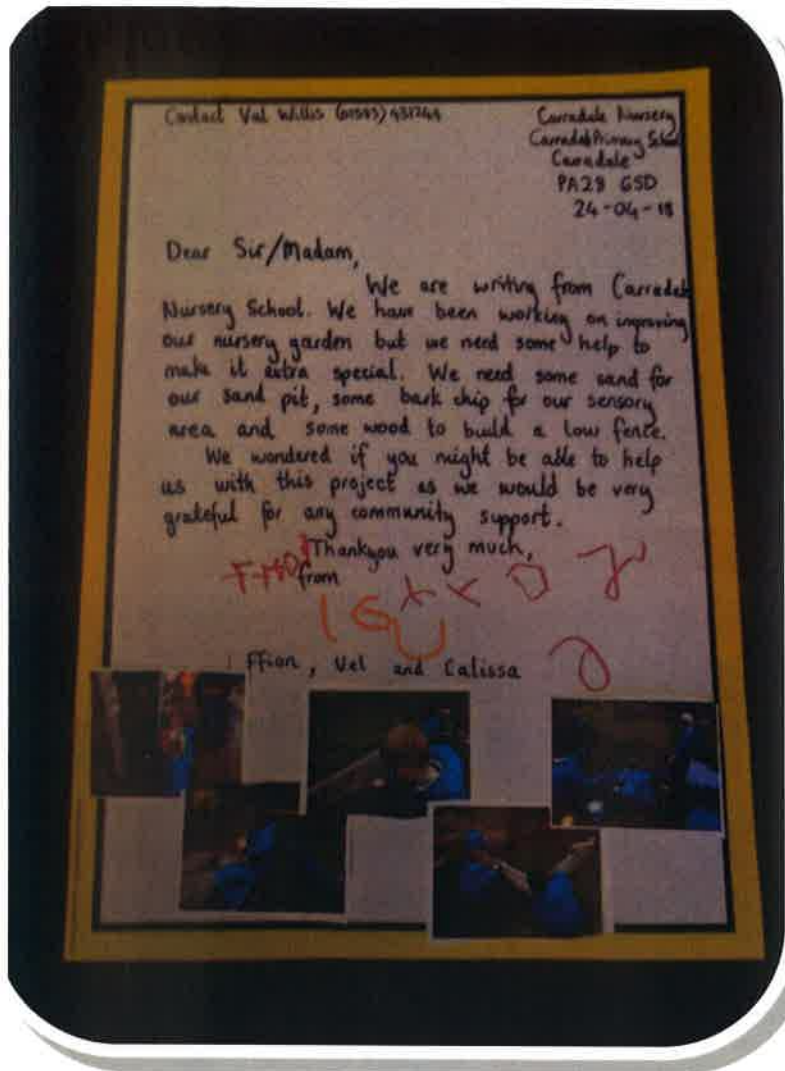 Contact Val Willis (01583) 431244
Carradale Nursery
Carradale Primary School
Carradale
PA28 6SD
24-04-18
Dear Sir/Madam,
We are writing from Carradale
Nursery School. We have been working on improving
our nursery garden but we need some help to
make it extra special. We need some sand for
our sand pit, some bark chip for our sensory
area and some wood to build a low fence.
We wondered if you might be able to help
us with this project as we would be very
grateful for any community support.
Thankyou very much,
from
Ffion, Vel and Calissa